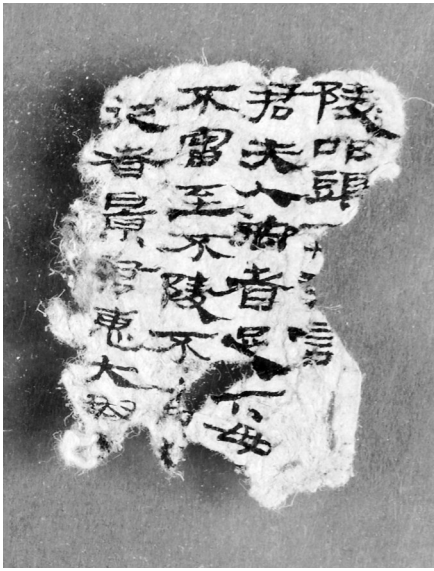 陵叩頭言
君夫人御者足下毋
不審至不陵不
記者景君惠大